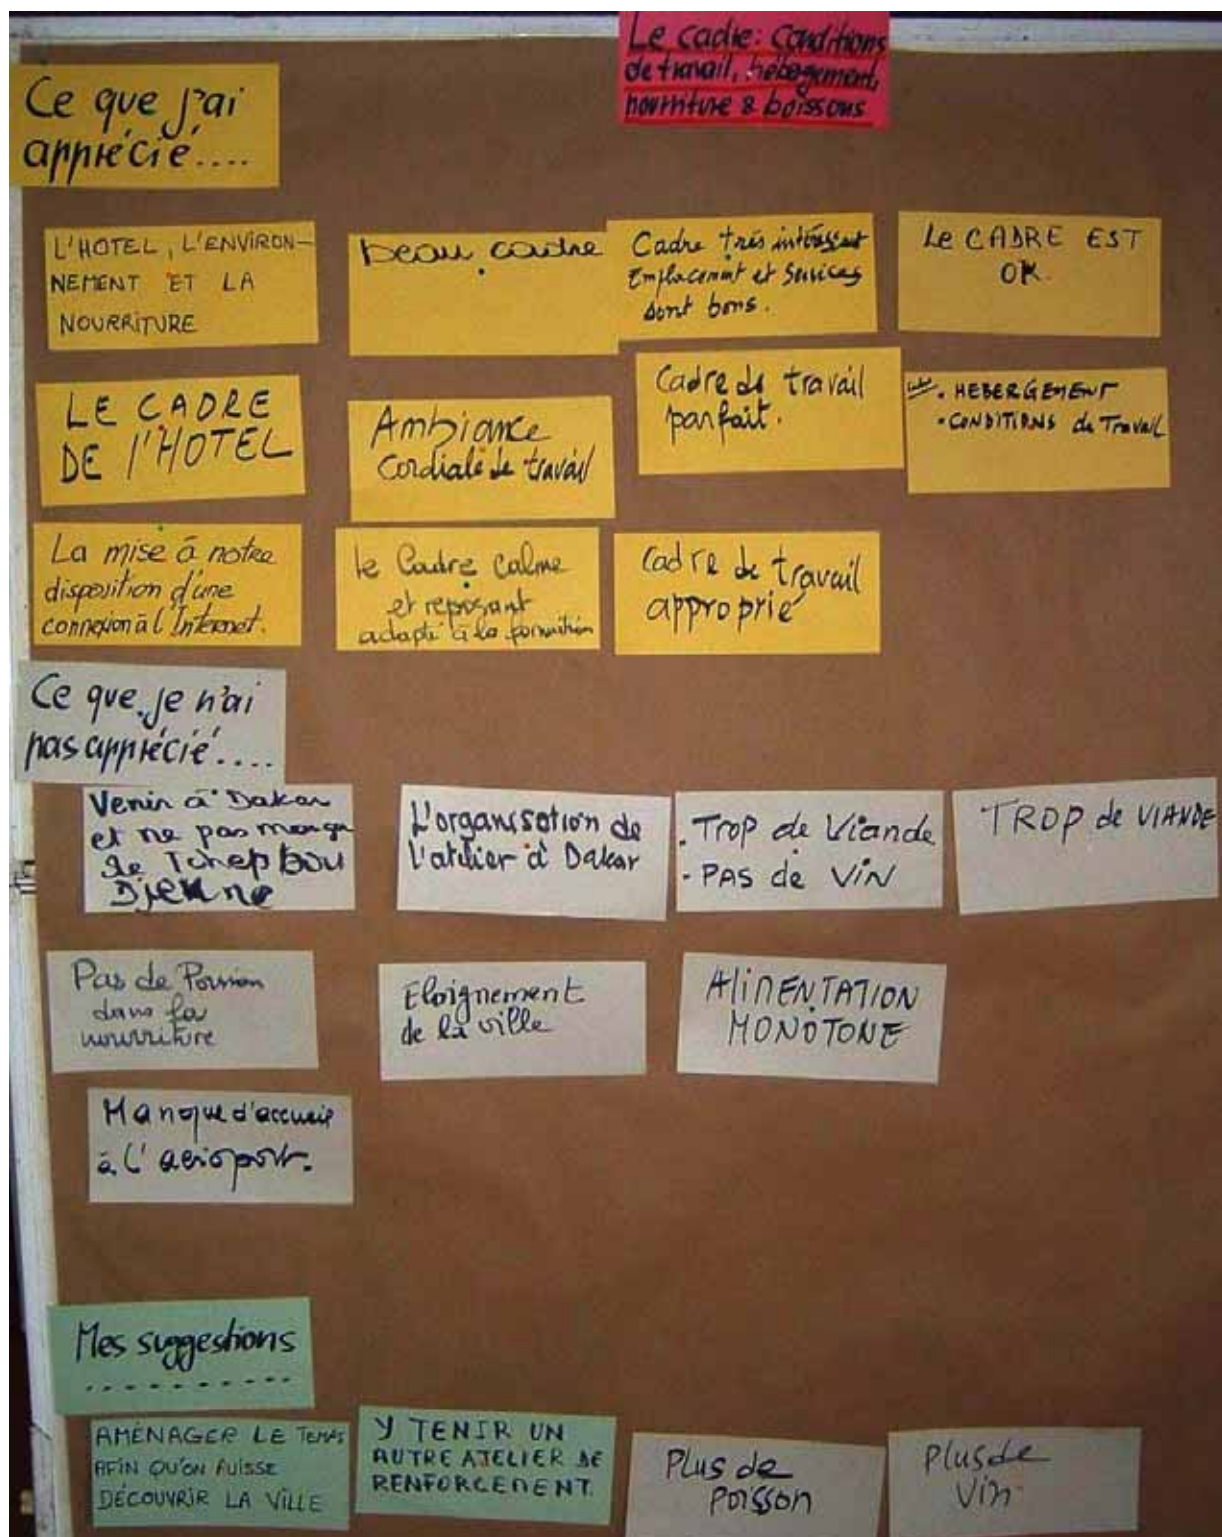 Le cadre: conditions
de travail, hébergement,
nourriture & boissons
Ce que j'ai
apprécié....
L'HOTEL, L'ENVIRON-
NEMENT ET LA
NOURRITURE
beau cadre
Cadre très intéressant
Emplacement et services
sont bons.
LE CADRE EST
OK.
LE CADRE
DE l'HOTEL
Ambiance
Cordiale de travail
Cadre de travail
parfait.
. HEBERGEMENT
. CONDITIONS de Travail
La mise à notre
disposition d'une
connexion à l'Internet.
le Cadre calme
et reposant
adapté à la formation
Cadre de travail
approprié
Ce que je n'ai
pas apprécié....
Venir à Dakar
et ne pas manger
de Tchep bou
Djenne
L'organisation de
l'atelier à Dakar
. Trop de Viande
- PAS de VIN
TROP de VIANDE
Pas de Poisson
dans la
nourriture
Eloignement
de la ville
ALIMENTATION
MONOTONE
Manque d'accueil
à l'aéroport.
Mes suggestions
..........
AMÉNAGER LE TEMPS
AFIN QU'ON PUISSE
DÉCOUVRIR LA VILLE
Y TENIR UN
AUTRE ATELIER DE
RENFORCEMENT.
PLUS de
POISSON
PLUS de
Vin